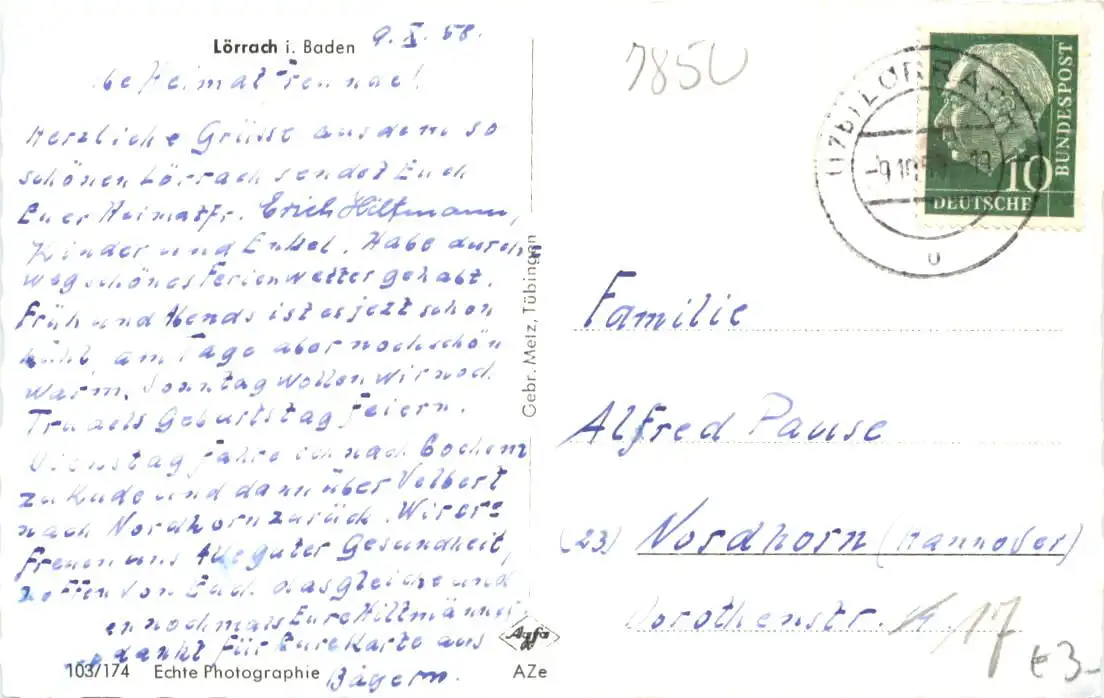 Lörrach i. Baden 9. X. 58.
Heimatfreunde!
Herzliche Grüsse aus dem so
schönen Lörrach sendet Euch
Euer Heimatfr. Erich Hiltmann,
Kinder und Enkel. Habe durch
weg schönes Ferienwetter gehabt.
Früh und Abends ist es jetzt schon
kühl, am Tage aber noch schön
warm. Sonntag wollen wir noch
Trudels Geburtstag feiern.
Dienstag fahre ich nach
zu und dann über Velbert
nach Nordhorn zurück. Wir er=
freuen uns guter Gesundheit,
hoffen von Euch das gleiche und
nochmals Eure Hiltmänner
dankt für Eure Karte aus
Bayern.
103/174 Echte Photographie
Agfa
AZe
Gebr. Metz, Tübingen
7850
(17b) LÖRRACH
-9.10.58
10
DEUTSCHE
BUNDESPOST
Familie
Alfred Pause
(23) Nordhorn (Hannover)
Dorothenstr.
17
€3-